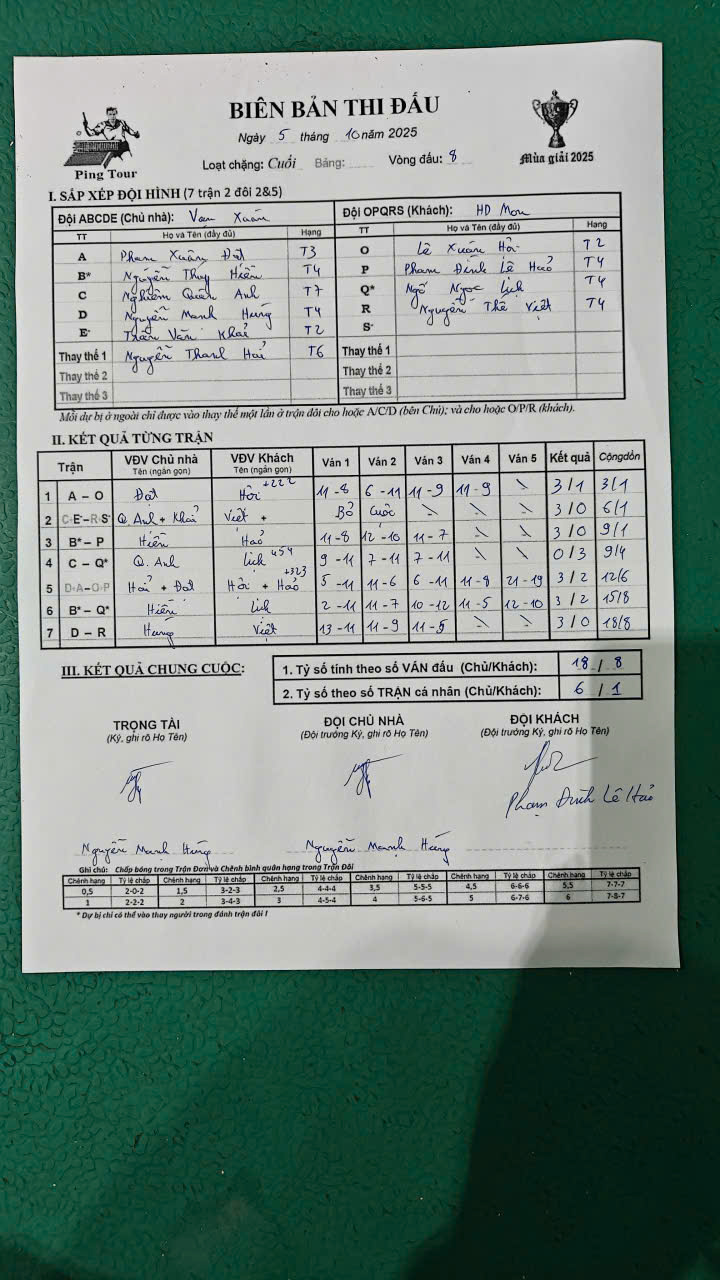 BIÊN BẢN THI ĐẤU
Ngày 5 tháng 10 năm 2025
Ping Tour
Loạt chặng: Cuối Bảng: Vòng đấu: 8
Mùa giải 2025
I. SẮP XẾP ĐỘI HÌNH (7 trận 2 đôi 2&5)
Đội ABCDE (Chủ nhà): Vạn Xuân Đội OPQRS (Khách): HD Mon
TT Họ và Tên (đầy đủ) Hạng TT Họ và Tên (đầy đủ) Hạng
A Phạm Xuân Đạt T3 O Lê Xuân Hởi T2
B* Nguyễn Thuý Hiền T4 P Phạm Đình Lê Hảo T4
C Nghiêm Quân Anh T7 Q* Ngô Ngọc Lịch T4
D Nguyễn Mạnh Hùng T4 R Nguyễn Thế Việt T4
E* Trần Văn Khải T2 S*
Thay thế 1 Nguyễn Thanh Hải T6 Thay thế 1
Thay thế 2 Thay thế 2
Thay thế 3 Thay thế 3
Mỗi dự bị ở ngoài chỉ được vào thay thế một lần ở trận đôi cho hoặc A/C/D (bên Chủ); và cho hoặc O/P/R (khách).
II. KẾT QUẢ TỪNG TRẬN
Trận VĐV Chủ nhà Tên (ngắn gọn) VĐV Khách Tên (ngắn gọn) Ván 1 Ván 2 Ván 3 Ván 4 Ván 5 Kết quả Cộngdồn
1 A – O Đạt Hởi +222 11-8 6-11 11-9 11-9 \ 3/1 3/1
2 C-E*–R-S* Q. Anh + Khải Việt + Bỏ cuộc \ \ \ 3/0 6/1
3 B* – P Hiền Hảo 11-8 12-10 11-7 \ \ 3/0 9/1
4 C – Q* Q. Anh Lịch 454 9-11 7-11 7-11 \ \ 0/3 9/4
5 D-A–O-P Hải + Đạt Hởi + Hảo +323 5-11 11-6 6-11 11-8 21-19 3/2 12/6
6 B* – Q* Hiền Lịch 2-11 11-7 10-12 11-5 12-10 3/2 15/8
7 D – R Hùng Việt 13-11 11-9 11-5 \ \ 3/0 18/8
III. KẾT QUẢ CHUNG CUỘC:
1. Tỷ số tính theo số VÁN đấu (Chủ/Khách): 18 / 8
2. Tỷ số theo số TRẬN cá nhân (Chủ/Khách): 6 / 1
TRỌNG TÀI ĐỘI CHỦ NHÀ ĐỘI KHÁCH
(Ký, ghi rõ Họ Tên) (Đội trưởng Ký, ghi rõ Họ Tên) (Đội trưởng Ký, ghi rõ Họ Tên)
Phạm Đình Lê Hảo
Nguyễn Mạnh Hùng Nguyễn Mạnh Hùng
Ghi chú: Chấp bóng trong Trận Đơn và Chênh bình quân hạng trong Trận Đôi
Chênh hạng Tỷ lệ chấp Chênh hạng Tỷ lệ chấp Chênh hạng Tỷ lệ chấp Chênh hạng Tỷ lệ chấp Chênh hạng Tỷ lệ chấp Chênh hạng Tỷ lệ chấp
0,5 2-0-2 1,5 3-2-3 2,5 4-4-4 3,5 5-5-5 4,5 6-6-6 5,5 7-7-7
1 2-2-2 2 3-4-3 3 4-5-4 4 5-6-5 5 6-7-6 6 7-8-7
* Dự bị chỉ có thể vào thay người trong đánh trận đôi !